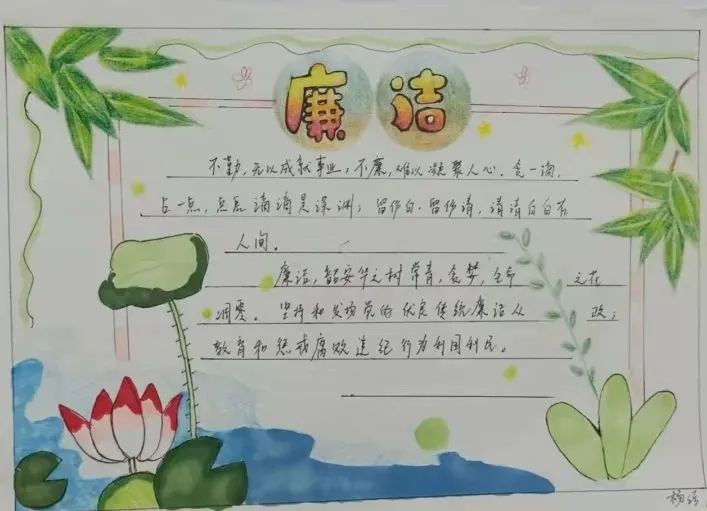 廉洁
不勤，无以成就事业，不廉，难以凝聚人心。贪一滴，
占一点，点点滴滴是深渊；留份白，留份清，清清白白在
人间。
廉洁，韶安华之树常青，贪婪，生命 之花
凋零。坚持和发扬党的优良传统廉洁从 政；
教育和惩戒腐败违纪行为利国利民。
杨